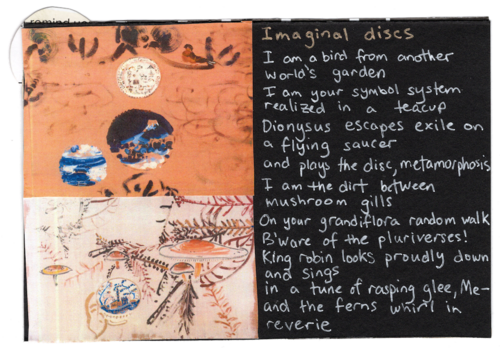 remind yo
Imaginal discs
I am a bird from another
world's garden
I am your symbol system
realized in a teacup
Dionysus escapes exile on
a flying saucer
and plays the disc, metamorphosis
I am the dirt between
mushroom gills
On your grandiflora random walk
B'ware of the pluriverses!
King robin looks proudly down
and sings
in a tune of rasping glee, Me-
and the ferns whirl in
reverie